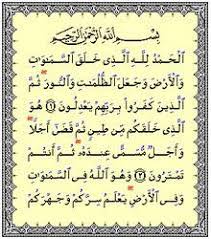 بِسْمِ اللَّهِ الرَّحْمَٰنِ الرَّحِيمِ
الْحَمْدُ لِلَّهِ الَّذِي خَلَقَ السَّمَاوَاتِ
وَالْأَرْضَ وَجَعَلَ الظُّلُمَاتِ وَالنُّورَ ثُمَّ
الَّذِينَ كَفَرُوا بِرَبِّهِمْ يَعْدِلُونَ ١ هُوَ
الَّذِي خَلَقَكُم مِّن طِينٍ ثُمَّ قَضَىٰ أَجَلًا
وَأَجَلٌ مُّسَمًّى عِندَهُ ثُمَّ أَنتُمْ
تَمْتَرُونَ ٢ وَهُوَ اللَّهُ فِي السَّمَاوَاتِ
وَفِي الْأَرْضِ يَعْلَمُ سِرَّكُمْ وَجَهْرَكُمْ